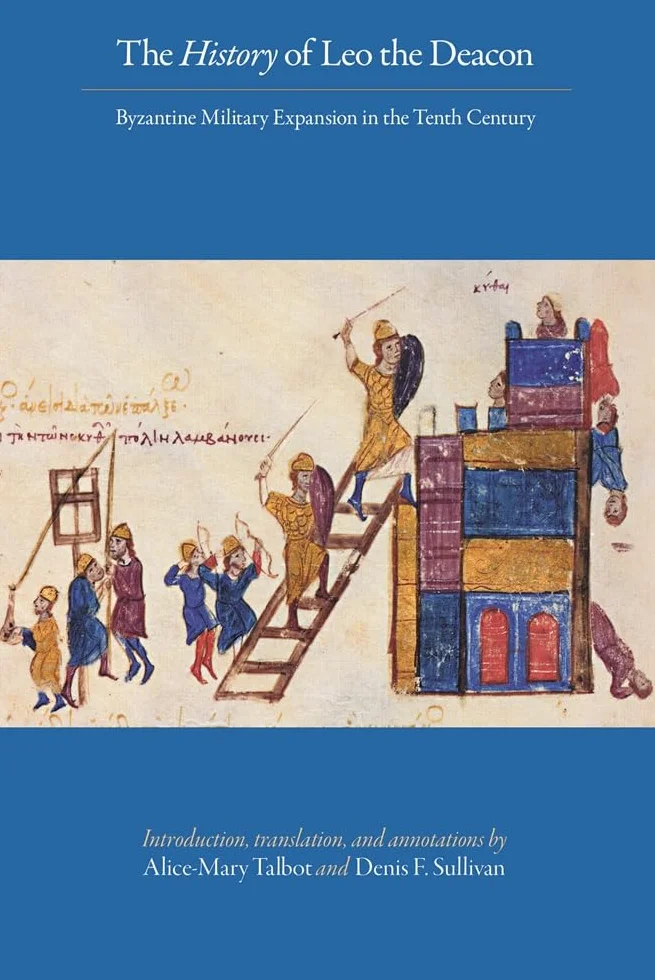 The History of Leo the Deacon
Byzantine Military Expansion in the Tenth Century
πόλιν λαμβάνουσι·
Introduction, translation, and annotations by
Alice-Mary Talbot and Denis F. Sullivan